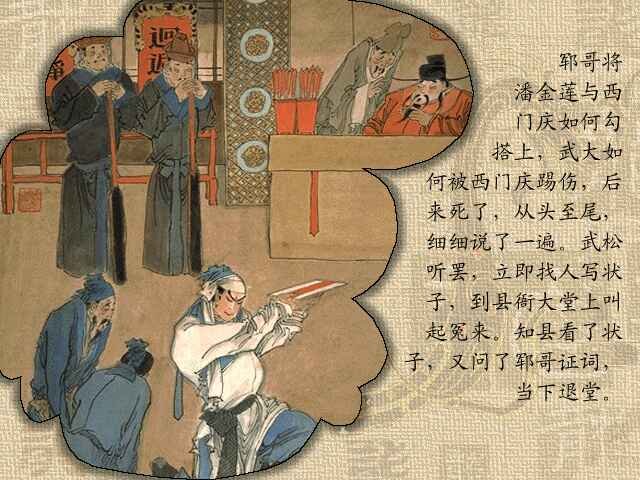 迴
郓哥将
潘金莲与西
门庆如何勾
搭上，武大如
何被西门庆踢伤，后
来死了，从头至尾，
细细说了一遍。武松
听罢，立即找人写状
子，到县衙大堂上叫
起冤来。知县看了状
子，又问了郓哥证词，
当下退堂。